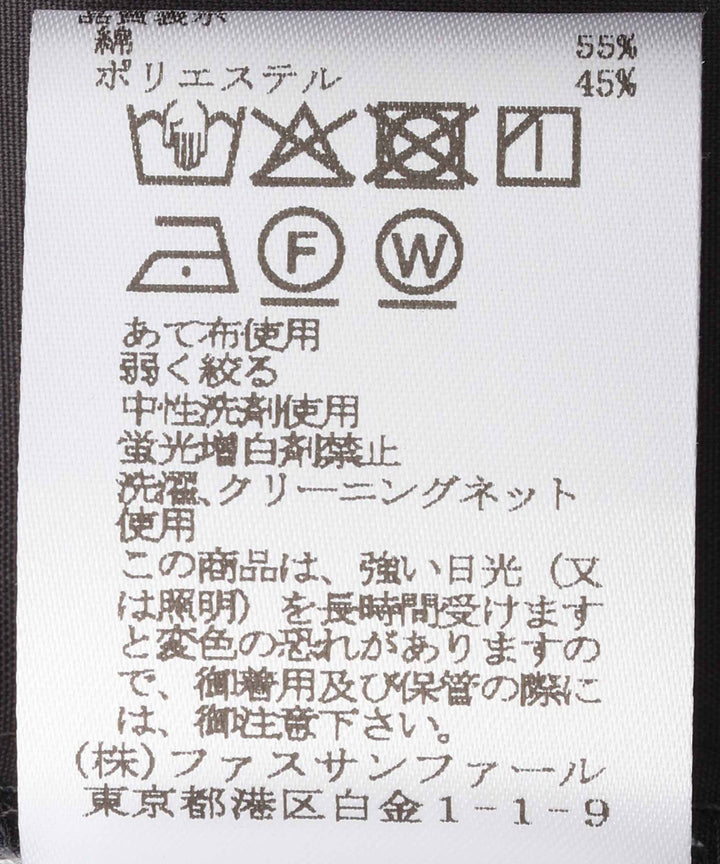 綿 55%
ポリエステル 45%
F W
あて布使用
弱く絞る
中性洗剤使用
蛍光増白剤禁止
洗濯、クリーニングネット
使用
この商品は、強い日光（又
は照明）を長時間受けます
と変色の恐れがありますの
で、御着用及び保管の際に
は、御注意下さい。
(株)ファスサンファール
東京都港区白金1-1-9